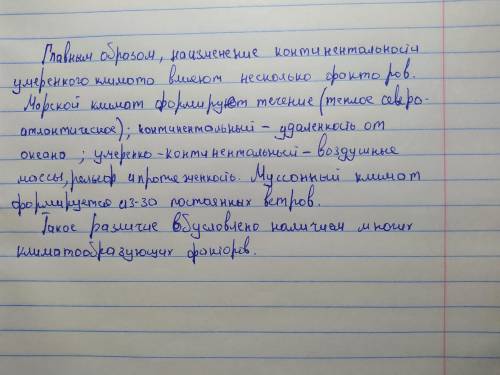 Главным образом, на изменение континентальности
умеренного климата влияют несколько факторов.
Морской климат формирует течение (теплое северо-
атлонтическое); континентальный - удаленность от
океана ; умеренно-континентальный - воздушные
массы, рельеф и протяженность. Муссонный климат
формируется из-за постоянных ветров.
Такое развитие обусловлено наличием многих
климатообразующих факторов.